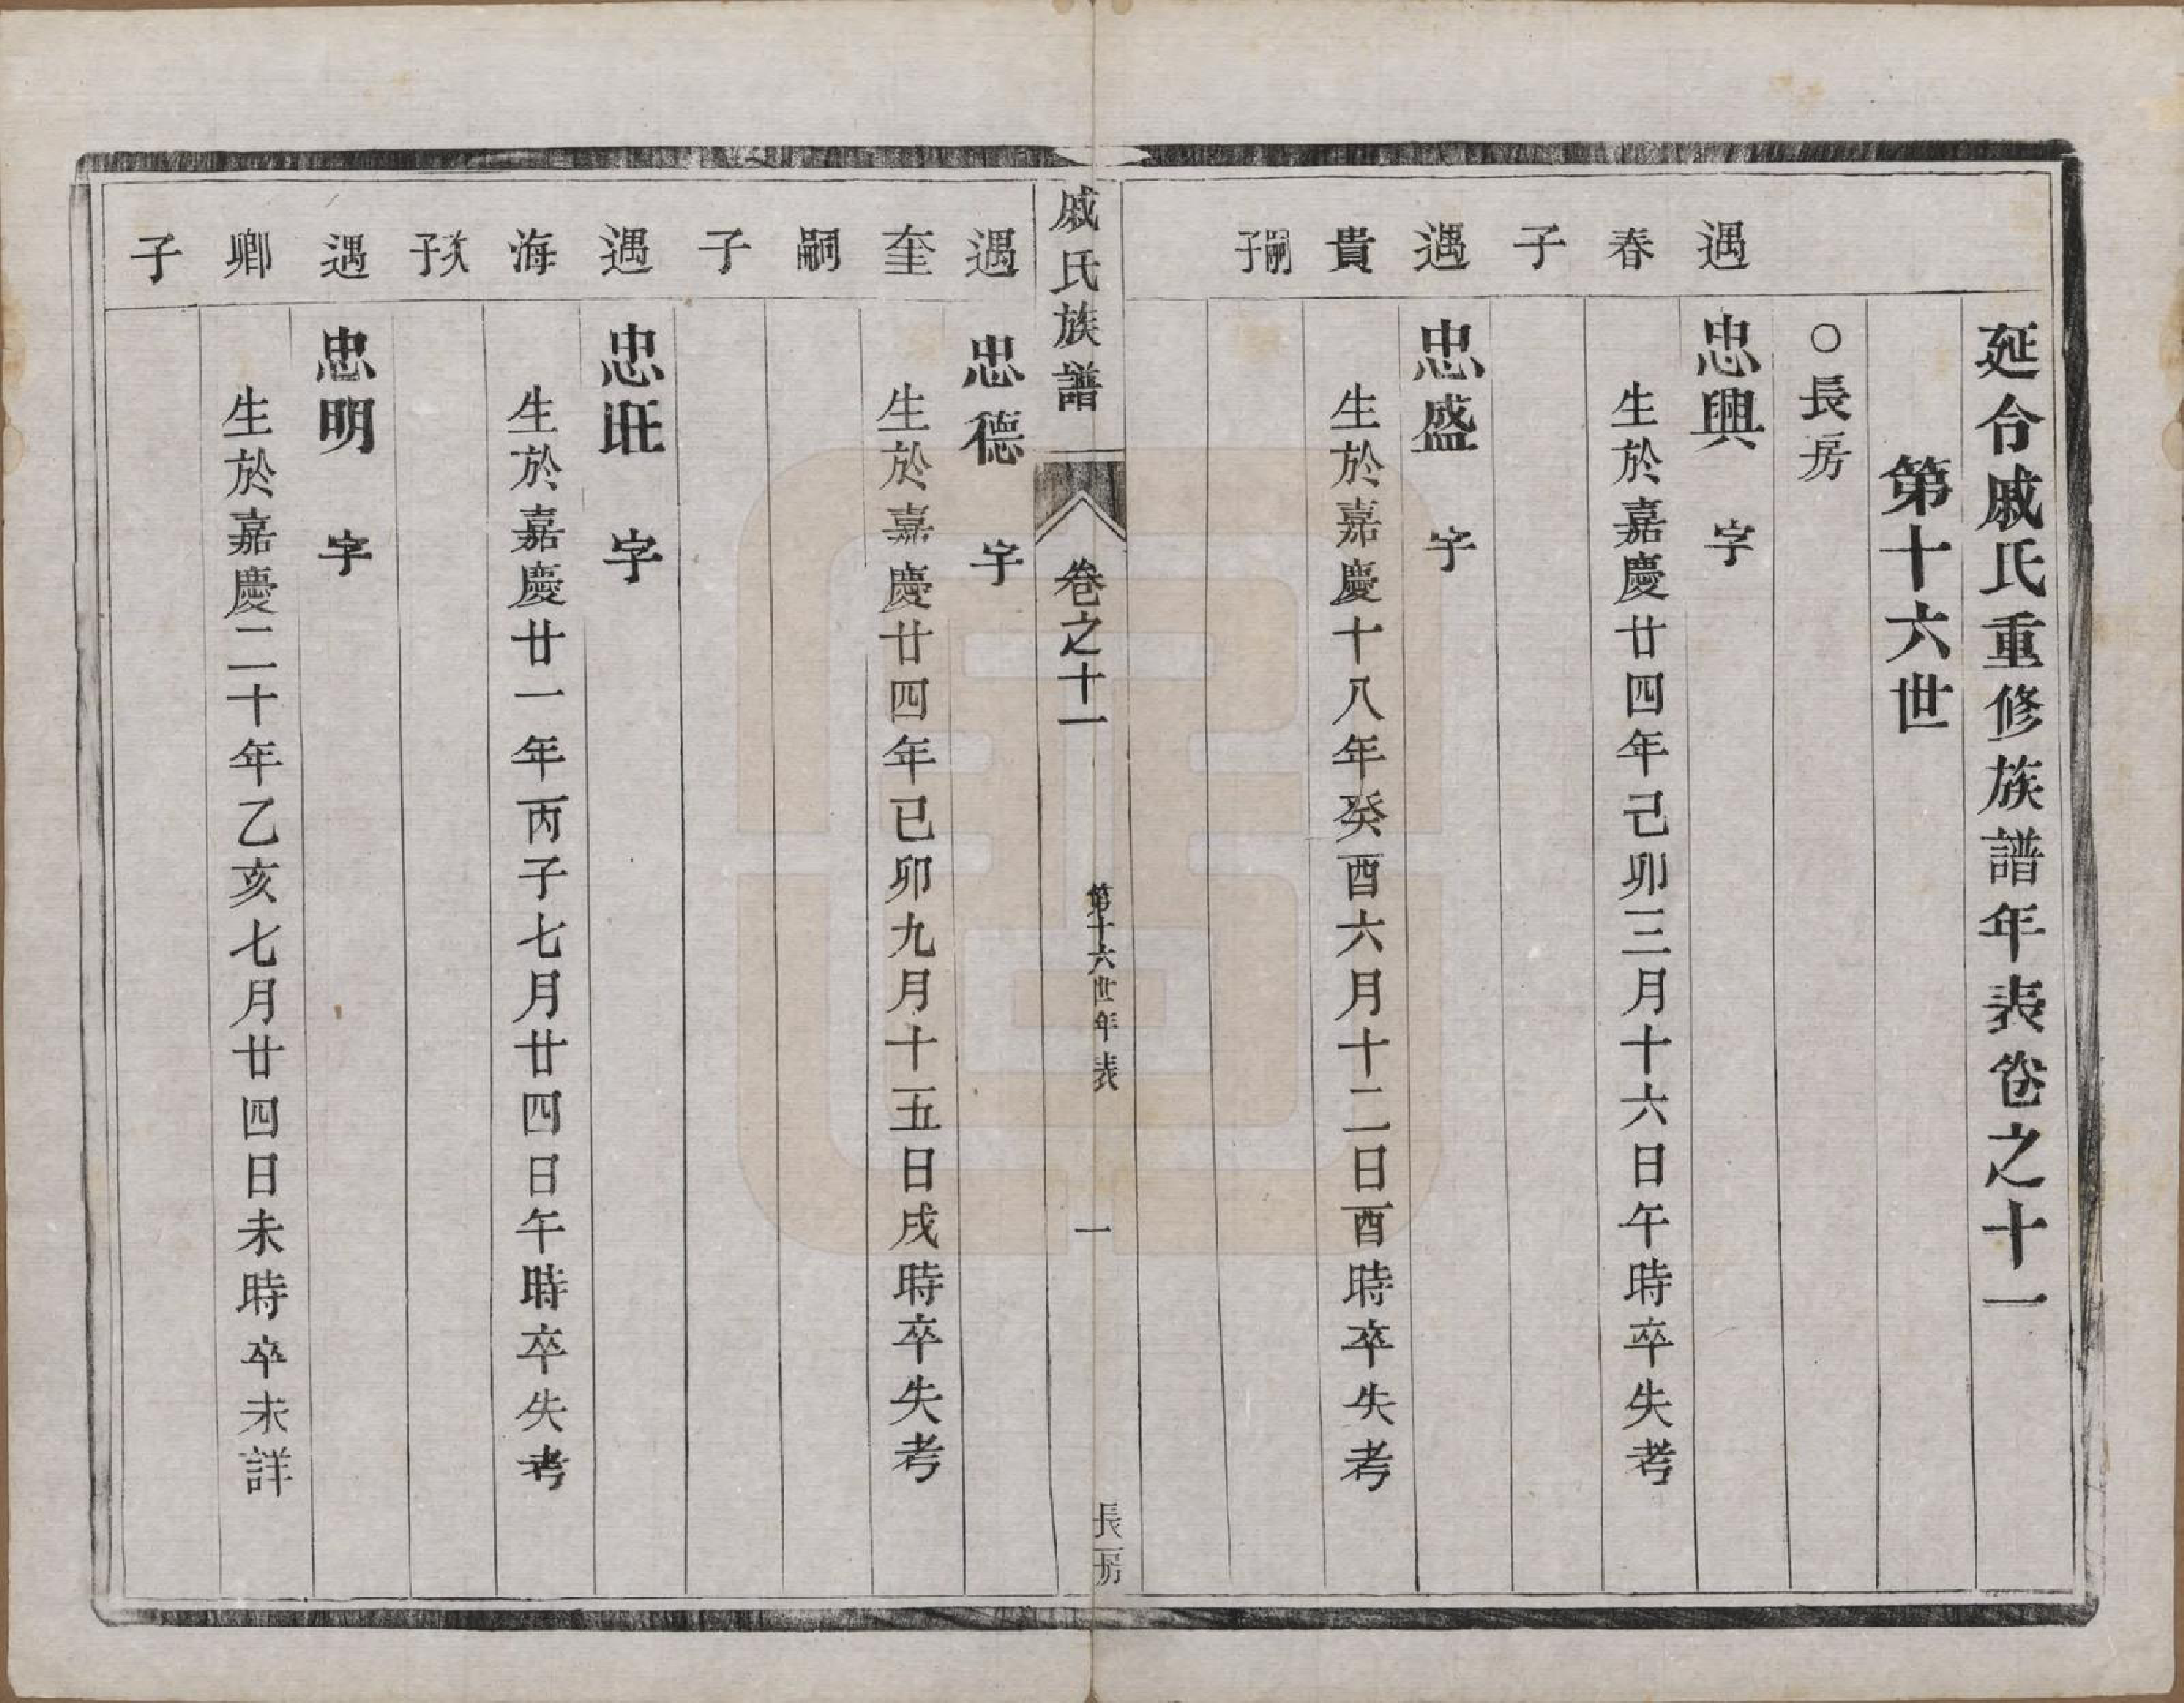 延令戚氏重修族譜年表卷之十一
第十六世
○長房
遇春子
忠興　字
生於嘉慶廿四年己卯三月十六日午時卒失考
遇貴嗣子
忠盛　字
生於嘉慶十八年癸酉六月十二日酉時卒失考
戚氏族譜　卷之十一　第十六世年表　一　長房
遇奎嗣子
忠德　字
生於嘉慶廿四年已卯九月十五日戌時卒失考
遇海次子
忠旺　字
生於嘉慶廿一年丙子七月廿四日午時卒失考
遇卿子
忠明　字
生於嘉慶二十年乙亥七月廿四日未時卒未詳